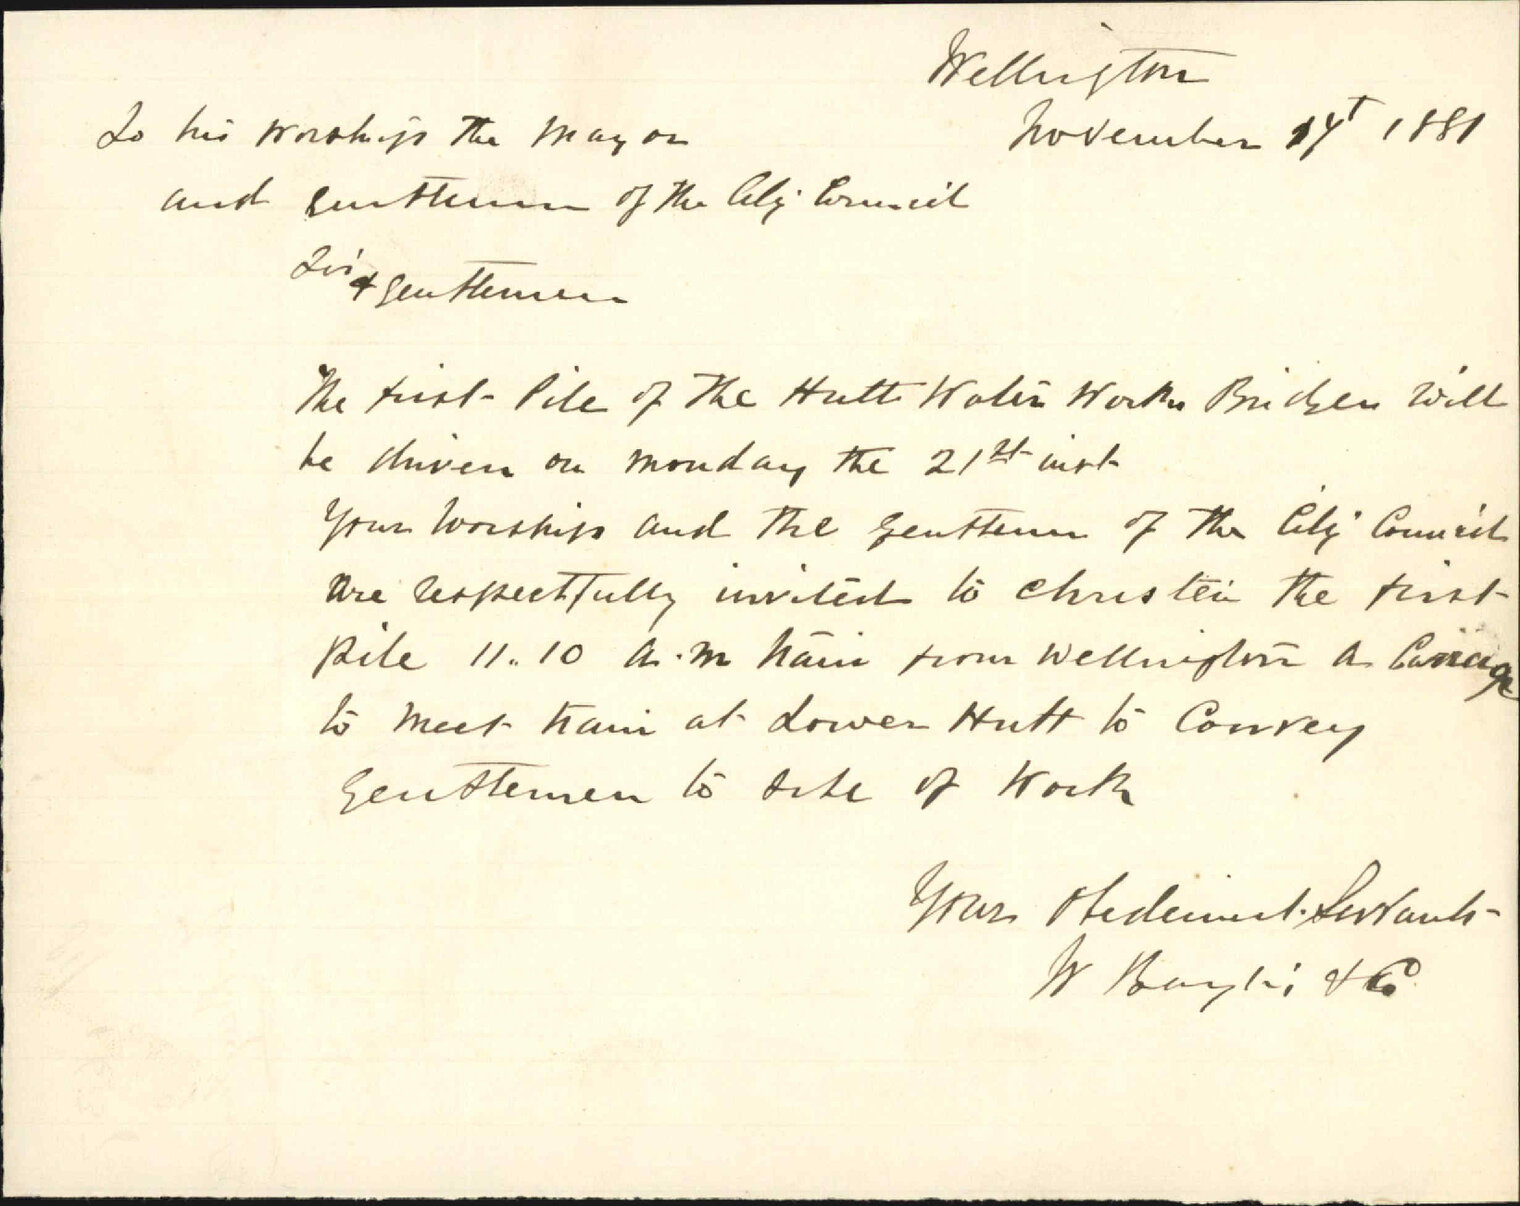 Wellington
November 17t 1881
To his Worship the Mayor
and gentlemen of the City Council
Sir & gentlemen
The first Pile of The Hutt Water Works Bridges Will
be driven on Monday the 21st inst
Your Worship and the gentlemen of the City Council
Are respectfully invited to Christen the first
Pile 11.10 A.M train from Wellington A Carriage
to Meet train at Lower Hutt to Convey
gentlemen to site of Work
Your Obedient Servants
W & Co